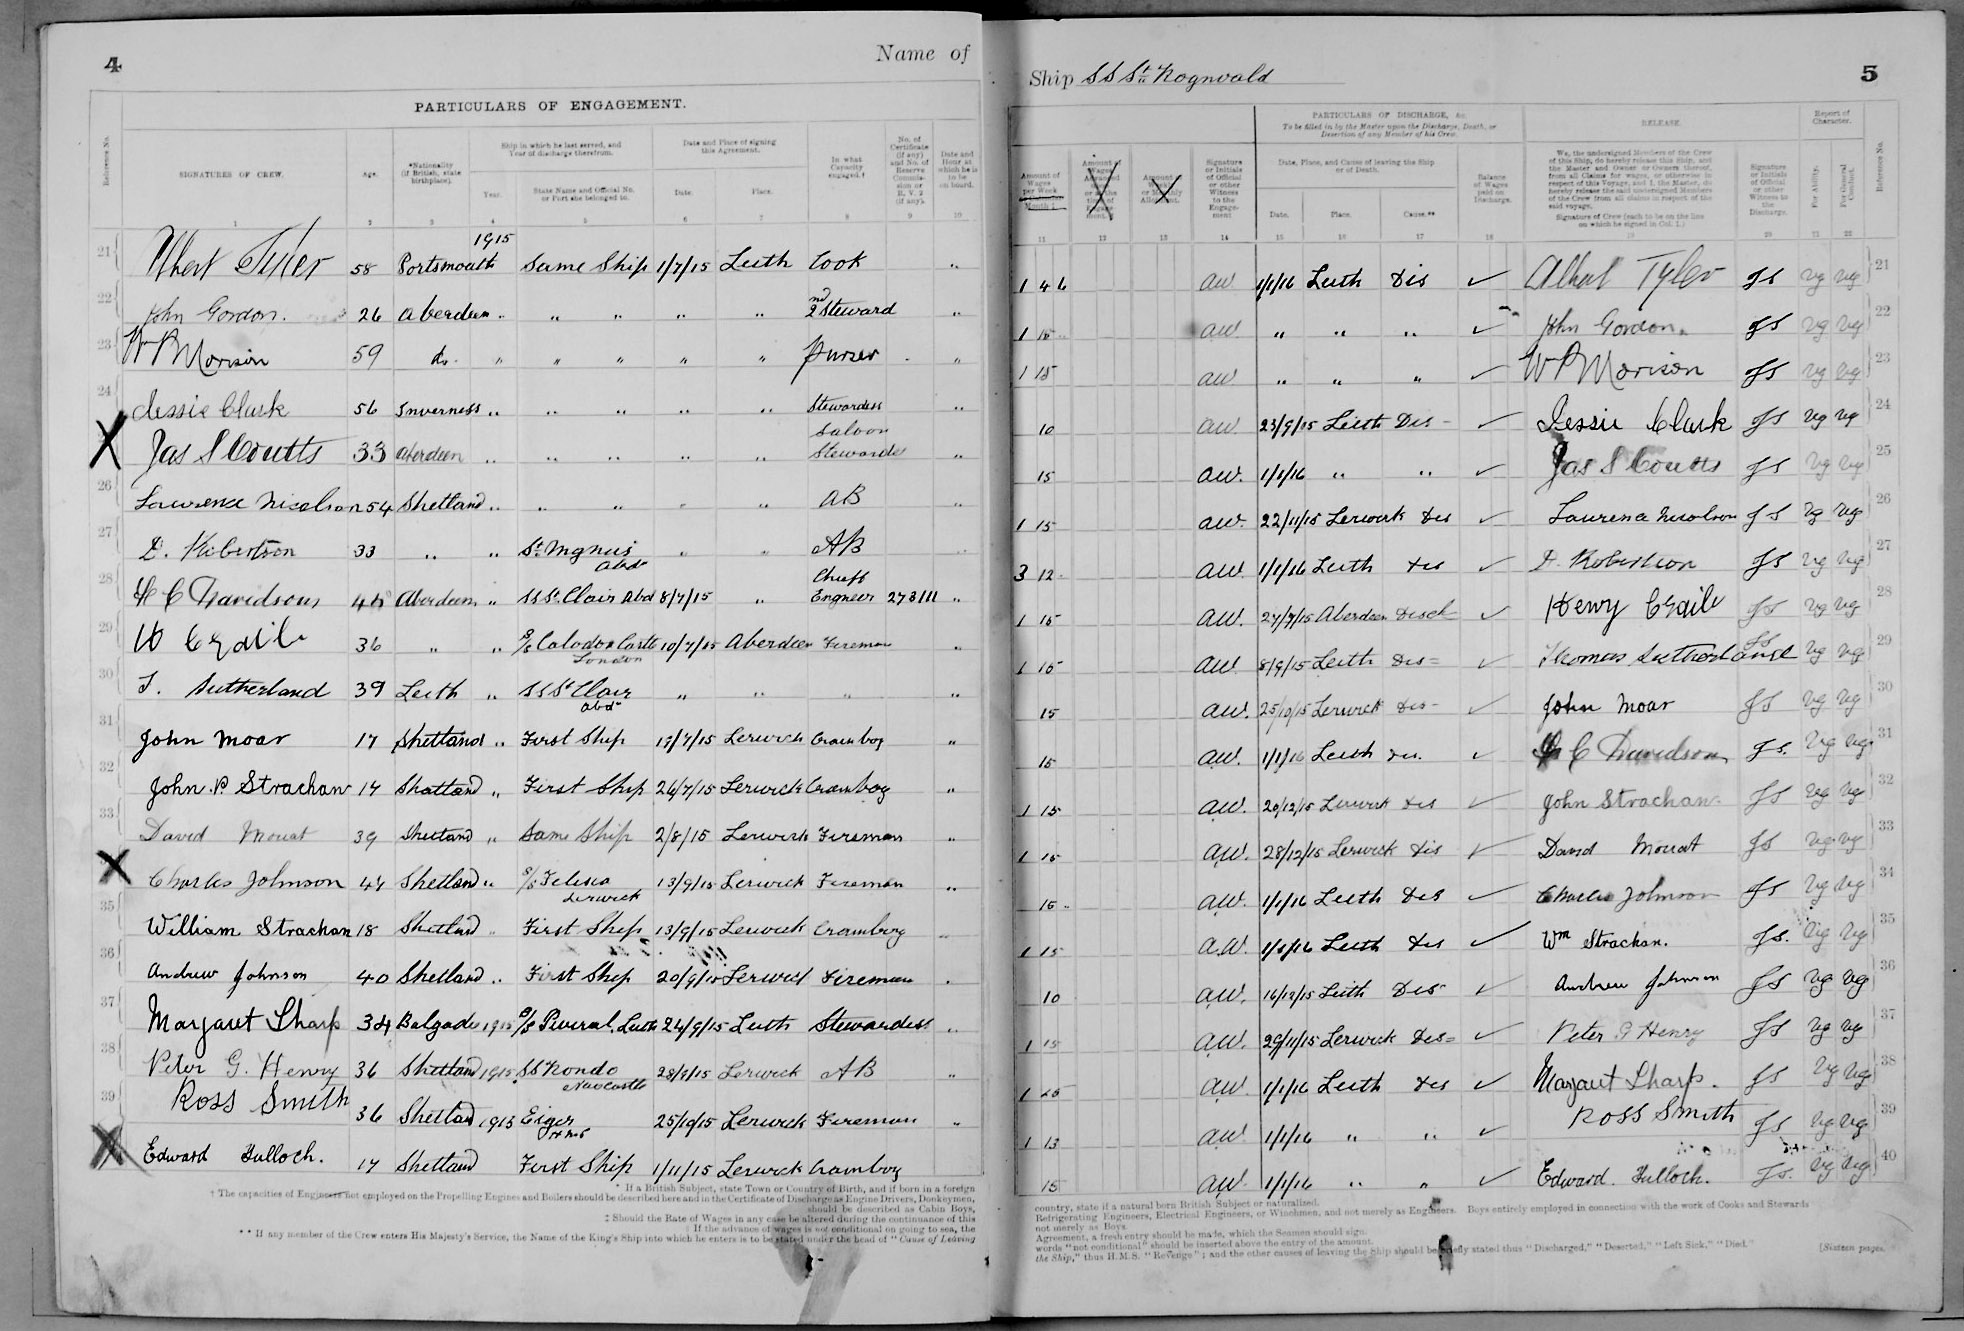 4
Name of
PARTICULARS OF ENGAGEMENT.
Reference No.
SIGNATURES OF CREW.
Age.
*Nationality (if British, state birthplace).
Ship in which he last served, and Year of discharge therefrom.
Year.
State Name and Official No. or Port she belonged to.
Date and Place of signing this Agreement.
Date.
Place.
In what Capacity engaged.†
No. of Certificate (if any) and No. of Reserve Commission or R.V. 2 (if any).
Date and Hour at which he is to be on board.
1 2 3 4 5 6 7 8 9 10
1915
21 Albert Tyler 58 Portsmouth Same Ship 1/7/15 Leith Cook "
22 John Gordon. 26 Aberdeen " " " " " 2nd Steward "
23 W P Morison 59 do. " " " " " Purser "
24 Jessie Clark 56 Inverness " " " " " Stewardess "
Saloon
X Jas S Coutts 33 Aberdeen " " " " " Steward "
26 Lawrence Nicolson 54 Shetland " " " " " AB "
27 D. Robertson 33 " " St. Magnus Abdn " " AB "
Chief
28 C Davidson Aberdeen " SS St. Clair Abd 8/7/15 " Engineer 27311 "
29 H Craib 36 " " S/S Caledon Castle London 10/7/15 Aberdeen Fireman "
30 T. Sutherland 39 Leith " SS St Clair Abdn " " " "
31 John Moar 17 Shetland " First Ship /7/15 Lerwick Cramboy "
32 John P Strachan 17 Shetland " First Ship 26/7/15 Lerwick Cramboy "
33 David Mouat 39 Shetland " Same Ship 2/8/15 Lerwick Fireman "
X Charles Johnson 44 Shetland " S/S Lerwick 13/9/15 Lerwick Fireman "
35 William Strachan 18 Shetland " First Ship 13/9/15 Lerwick Cramboy "
36 Andrew Johnson 40 Shetland " First Ship 20/9/15 Lerwick Fireman "
37 Margaret Sharp 34 1915 S/S Peveral, Leith 24/9/15 Leith Stewardess "
38 Peter G. Henry 36 Shetland 1915 SS Newcastle 28/9/15 Lerwick AB "
39 Ross Smith 36 Shetland 1915 Eiger 25/10/15 Lerwick Fireman "
X Edward Tulloch. 17 Shetland First Ship 1/11/15 Lerwick Cramboy
* If a British Subject, state Town or Country of Birth, and if born in a foreign
† The capacities of Engineers not employed on the Propelling Engines and Boilers should be described here and in the Certificate of Discharge as Engine Drivers, Donkeymen,
should be described as Cabin Boys,
‡ Should the Rate of Wages in any case be altered during the continuance of this
|| If the advance of wages is not conditional on going to sea, the
** If any member of the Crew enters His Majesty's Service, the Name of the King's Ship into which he enters is to be stated under the head of "Cause of Leaving
Ship SS St. Rognvald
5
Amount of Wages per Week Month ‡.
Amount of Wages Advanced
Amount of Monthly Allotment.
Signature or Initials of Official or other Witness to the Engagement
PARTICULARS OF DISCHARGE, &c.
To be filled in by the Master upon the Discharge, Death, or Desertion of any Member of his Crew.
Date, Place, and Cause of leaving the Ship or of Death.
Date.
Place.
Cause.**
Balance of Wages paid on Discharge.
RELEASE.
We, the undersigned Members of the Crew
of this Ship, do hereby release this Ship, and
the Master and Owner or Owners thereof,
from all Claims for wages, or otherwise in
respect of this Voyage, and I, the Master, do
hereby release the said undersigned Members
of the Crew from all claims in respect of the
said voyage.
Signature of Crew (each to be on the line
on which he signed in Col. 1.)
Signature or Initials of Official or other Witness to the Discharge.
Report of Character.
For Ability.
For General Conduct.
Reference No.
11 12 13 14 15 16 17 18 19 20 21 22
1 4 6 AW 1/1/16 Leith Dis ✓ Albert Tyler JS Vg Vg 21
1 15 AW " " " ✓ John Gordon. JS Vg Vg 22
1 15 AW " " " ✓ W P Morison JS Vg Vg 23
10 AW. 23/9/15 Leith Dis ✓ Jessie Clark JS Vg Vg 24
15 AW. 1/1/16 " " ✓ Jas S Coutts JS Vg Vg 25
1 15 AW. 22/11/15 Lerwick Dis ✓ Laurence Nicolson JS Vg Vg 26
3 12 AW 1/1/16 Leith Dis ✓ D. Robertson JS Vg Vg 27
1 15 AW. 27/7/15 Aberdeen Disch ✓ Henry Craib JS Vg Vg 28
1 15 AW. 8/9/15 Leith Dis ✓ Thomas Sutherland JS Vg Vg 29
15 AW. 25/10/15 Lerwick Dis ✓ John Moar JS Vg Vg 30
15 AW. 1/1/16 Leith Dis. ✓ C Davidson JS. Vg Vg 31
1 15 AW. 20/12/15 Lerwick Dis ✓ John Strachan JS Vg Vg 32
1 15 AW. 28/12/15 Lerwick Dis ✓ David Mouat JS Vg Vg 33
15 AW. 1/1/16 Leith Dis ✓ Charles Johnson JS Vg Vg 34
1 15 AW. 1/1/16 Leith Dis ✓ Wm Strachan. JS. Vg Vg 35
10 AW. 16/12/15 Leith Dis ✓ Andrew Johnson JS Vg Vg 36
1 15 AW. 29/11/15 Lerwick Dis ✓ Peter G Henry JS Vg Vg 37
1 AW 1/1/16 Leith Dis ✓ Margaret Sharp. JS Vg Vg 38
1 13 AW. 1/1/16 " " ✓ Ross Smith JS Vg Vg 39
15 AW. 1/1/16 " " ✓ Edward. Tulloch. JS. Vg Vg 40
country, state if a natural born British Subject or naturalized.
Refrigerating Engineers, Electrical Engineers, or Winchmen, and not merely as Engineers. Boys entirely employed in connection with the work of Cooks and Stewards
not merely as Boys.
Agreement, a fresh entry should be made, which the Seamen should sign.
words "not conditional" should be inserted above the entry of the amount.
the Ship," thus H.M.S. "Revenge"; and the other causes of leaving the Ship should be briefly stated thus "Discharged," "Deserted," "Left Sick," "Died."
[Sixteen pages.